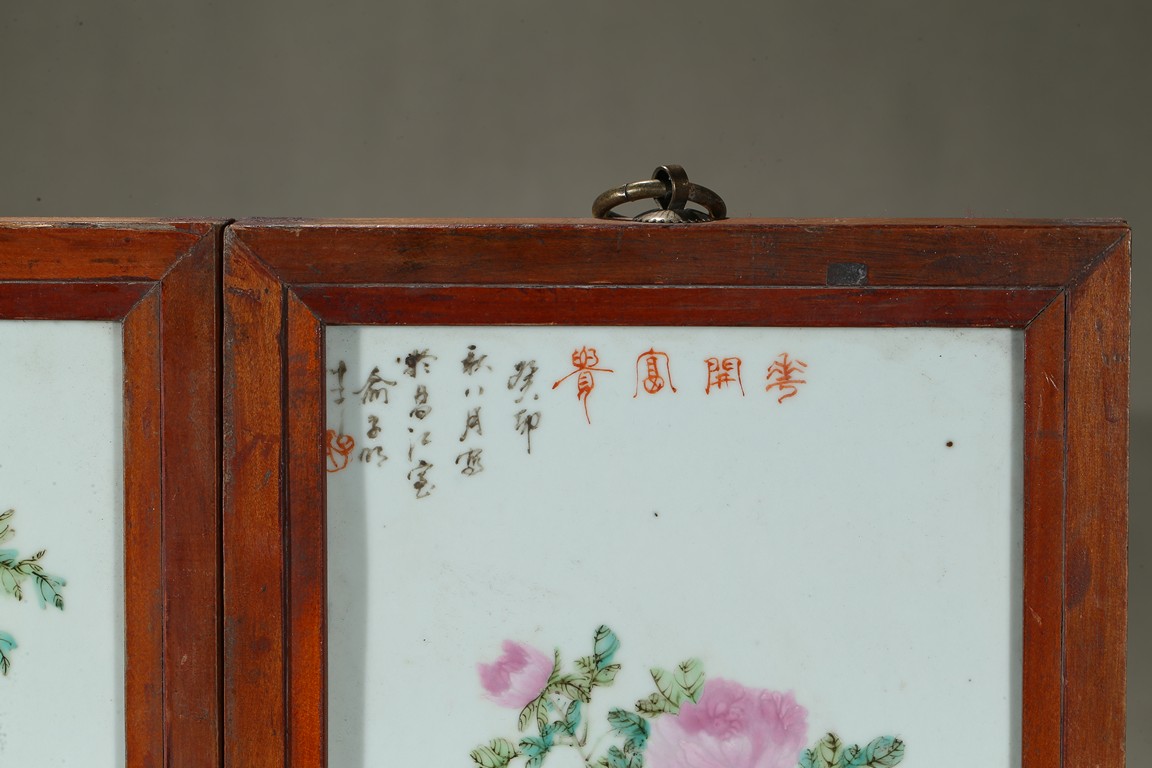 花開富貴
癸卯
秋八月寫
於昌江室
俞子明